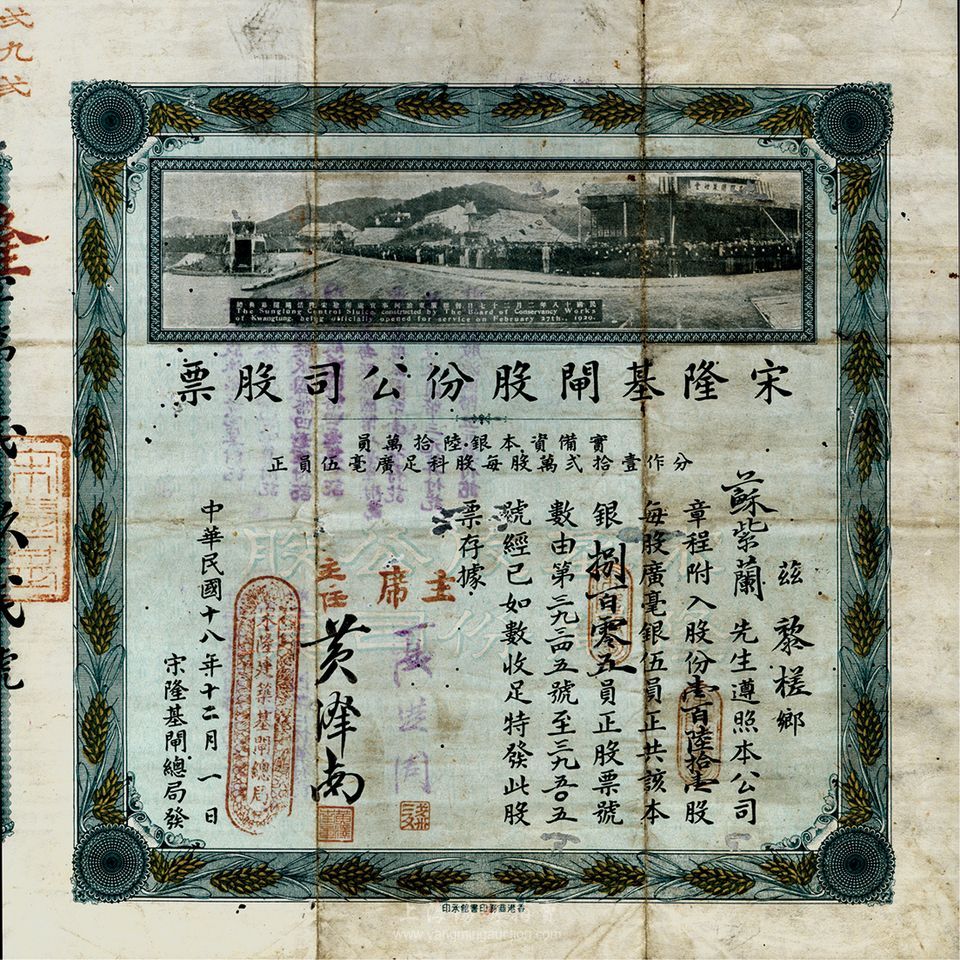 弍九弍
民國十八年二月二十七日
The Sunglung Central Sluice, constructed by The Board of Conservancy Works
of Kwangtung, being officially opened for service on February 27th., 1929.
宋隆基閘股份公司股票
實備資本銀陸拾萬員
分作壹拾弍萬股每股科足廣毫伍員正
茲
藜槎鄉
蘇紫蘭先生遵照本公司
章程附入股份壹百陸拾壹股
每股廣毫銀伍員正共該本
銀捌百零五員正股票號
數由第三九三四五號至三九五〇五
號經已如數收足特發此股
票存據
主席
主任
黃澤南
中華民國十八年十二月一日
宋隆基閘總局發
宋隆建築基閘總局
香港商務印書館承印
www.yangmingauction.com